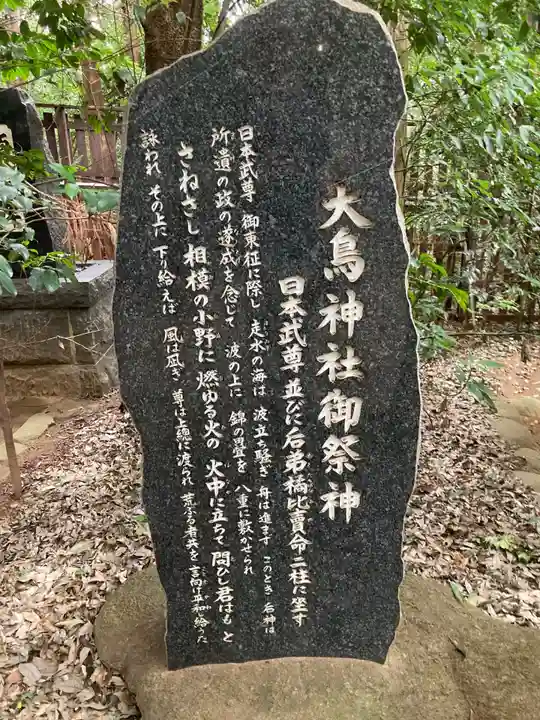 大鳥神社御祭神
日本武尊 並びに后弟橘比賣命二柱に坐す
日本武尊 御東征に際し 走水の海は 波立ち騒ぎ 舟は進まず このとき 后神は
所遣の政の遂成を念じて 波の上に 錦の畳を 八重に敷かせられ
さねさし 相模の小野に 燃ゆる火の 火中に立ちて 問ひし君はも と
詠われ その上に 下り給えは 風は凪ぎ 尊は上總に渡られ 荒ぶる者共を 言向け平和し給うた